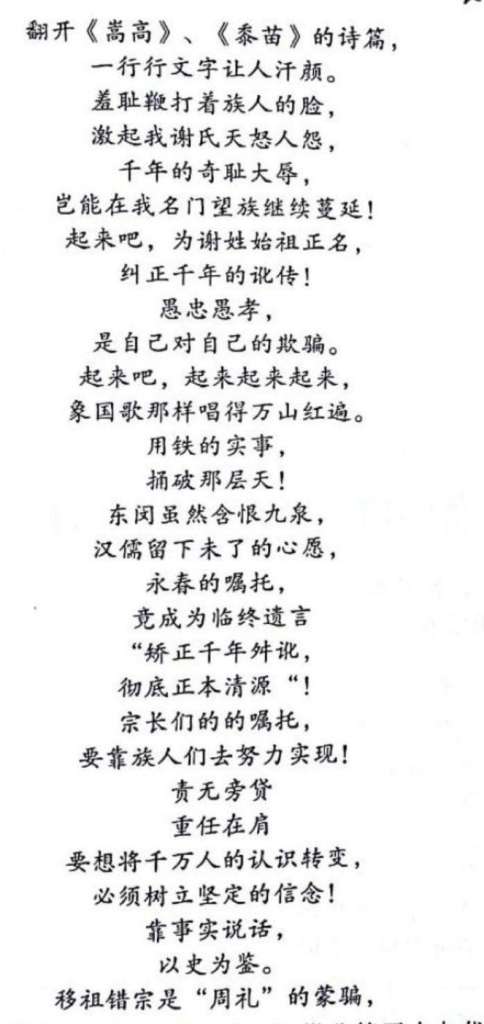 翻开《嵩高》、《黍苗》的诗篇，
一行行文字让人汗颜。
羞耻鞭打着族人的脸，
激起我谢氏天怒人怨，
千年的奇耻大辱，
岂能在我名门望族继续蔓延！
起来吧，为谢姓始祖正名，
纠正千年的讹传！
愚忠愚孝，
是自己对自己的欺骗。
起来吧，起来起来起来，
象国歌那样唱得万山红遍。
用铁的实事，
捅破那层天！
东闵虽然含恨九泉，
汉儒留下未了的心愿，
永春的嘱托，
竟成为临终遗言
“矫正千年舛讹，
彻底正本清源“！
宗长们的的嘱托，
要靠族人们去努力实现！
责无旁贷
重任在肩
要想将千万人的认识转变，
必须树立坚定的信念！
靠事实说话，
以史为鉴。
移祖错宗是“周礼”的蒙骗，